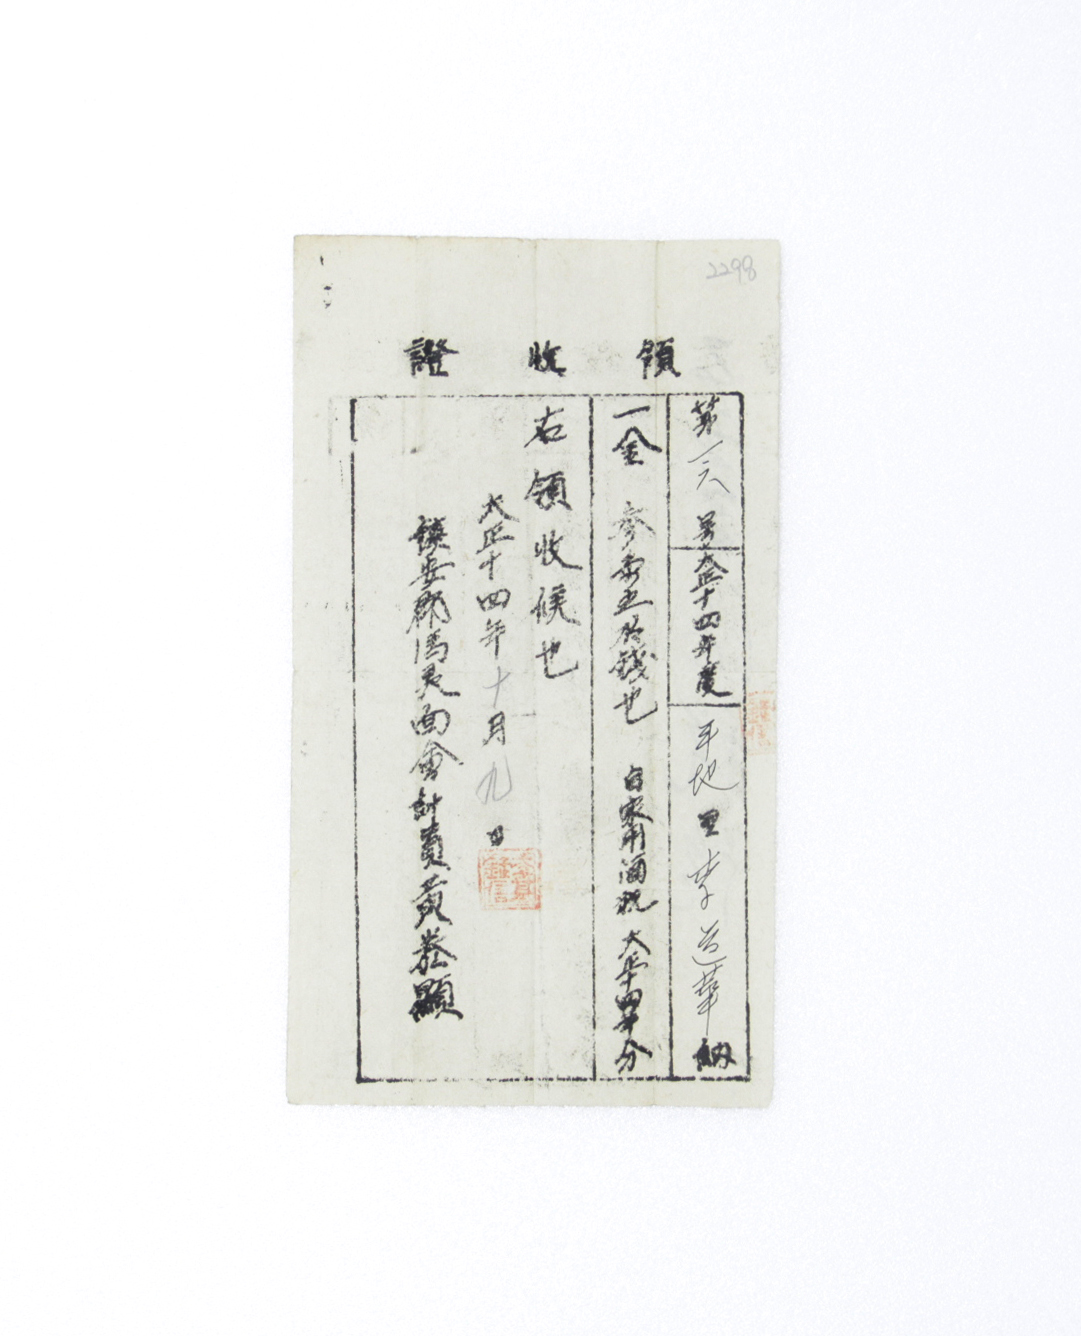 2298
領收證
第一六号 大正十四年度 平地里 李道華 納
一金 参円五拾錢也 自家用酒税 大正十四年分
右領收候也
大正十四年十月九日
鎮安郡馬灵面會計員黃
顯